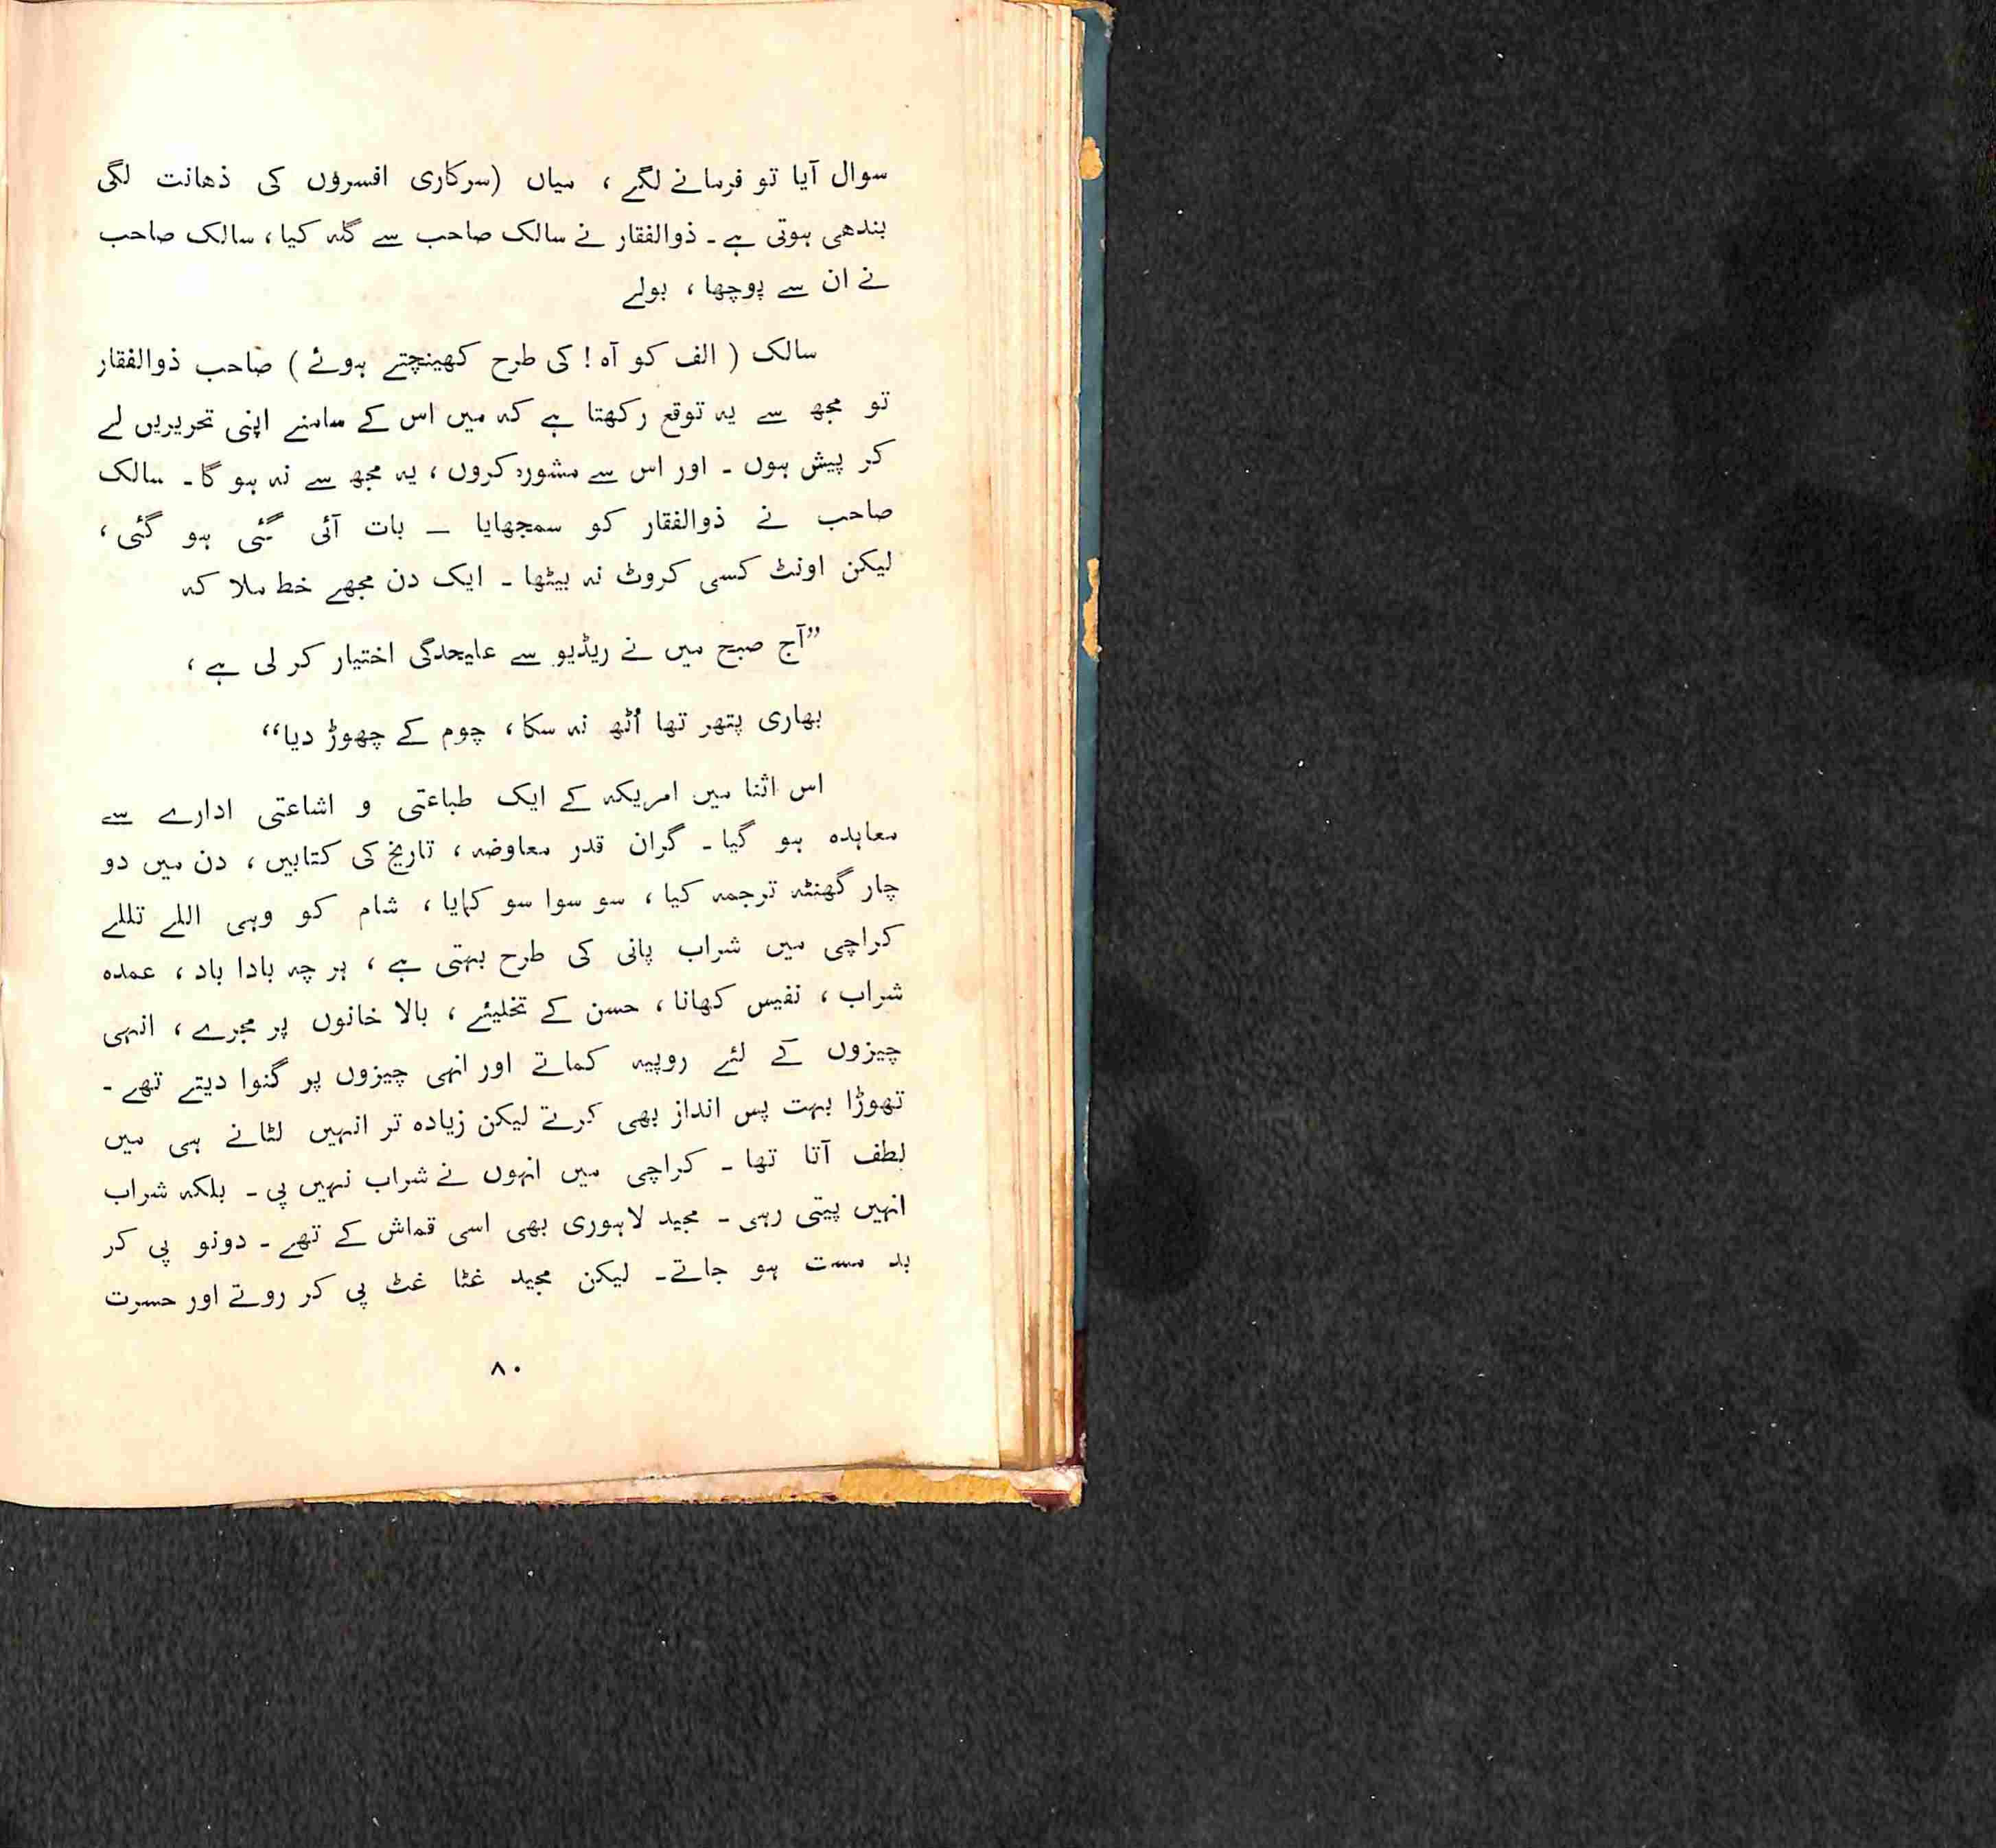 سوال آیا تو فرمانے لگے ، میاں (سرکاری افسروں کی ذھانت لگی
بندھی ہوتی ہے ۔ ذوالفقار نے سالک صاحب سے گلہ کیا ، سالک صاحب
نے ان سے پوچھا ، بولے
سالک ( الف کو آہ ! کی طرح کھینچتے ہوئے ) صاحب ذوالفقار
تو مجھ سے یہ توقع رکھتا ہے کہ میں اس کے سامنے اپنی تحریریں لے
کر پیش ہوں ۔ اور اس سے مشورہ کروں ، یہ مجھ سے نہ ہو گا ۔ سالک
صاحب نے ذوالفقار کو سمجھایا ۔ بات آئی گئی ہو گئی ،
لیکن اونٹ کسی کروٹ نہ بیٹھا ۔ ایک دن مجھے خط ملا کہ
”آج صبح میں نے ریڈیو سے علیحدگی اختیار کر لی ہے ،
بھاری پتھر تھا اُٹھ نہ سکا ، چوم کے چھوڑ دیا“
اس اثنا میں امریکہ کے ایک طباعتی و اشاعتی ادارے سے
معاہدہ ہو گیا ۔ گران قدر معاوضہ ، تاریخ کی کتابیں ، دن میں دو
چار گھنٹہ ترجمہ کیا ، سو سوا سو کمایا ، شام کو وہی اللے تللے
کراچی میں شراب پانی کی طرح بہتی ہے ، ہر چہ بادا باد ، عمدہ
شراب ، نفیس کھانا ، حسن کے تخلیئے ، بالا خانوں پر مجرے ، انہی
چیزوں کے لئے روپیہ کماتے اور انہی چیزوں پر گنوا دیتے تھے ۔
تھوڑا بہت پس انداز بھی کرتے لیکن زیادہ تر انہیں لٹانے ہی میں
لطف آتا تھا ۔ کراچی میں انہوں نے شراب نہیں پی ۔ بلکہ شراب
انہیں پیتی رہی ۔ مجید لاہوری بھی اسی قماش کے تھے ۔ دونو پی کر
بد مست ہو جاتے ۔ لیکن مجید غٹا غٹ پی کر روتے اور حسرت
۸۰